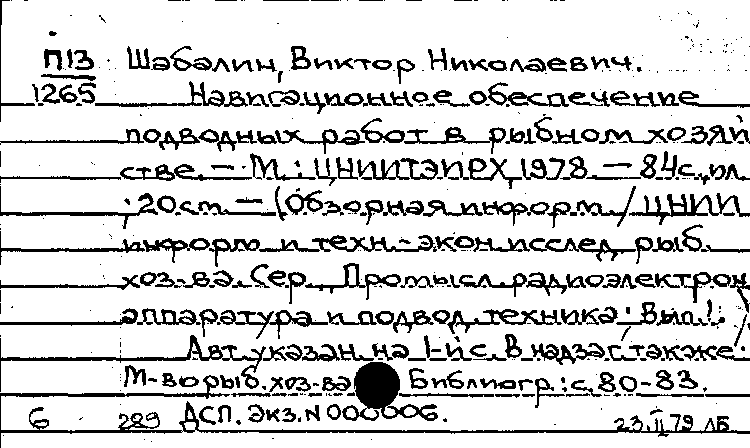 П13 Шабалин, Виктор Николаевич.
1265 Навигационное обеспечение
подводных работ в рыбном хозяй
стве. — М.: ЦНИИТЭИРХ, 1978. — 84с., ил.
; 20см. — (Обзорная информ. / ЦНИИ
информ. и техн.-экон. исслед. рыб.
хоз-ва. Сер., Промысл. радиоэлектрон.
аппаратура и подвод. техника; Вып.1.
Авт. указан на 1-й с. В надзаг. также:
М-во рыб. хоз-ва Библиогр.: с. 80-83.
6 289 ДСП. Экз. N 000006. 23.II.79 ЛБ